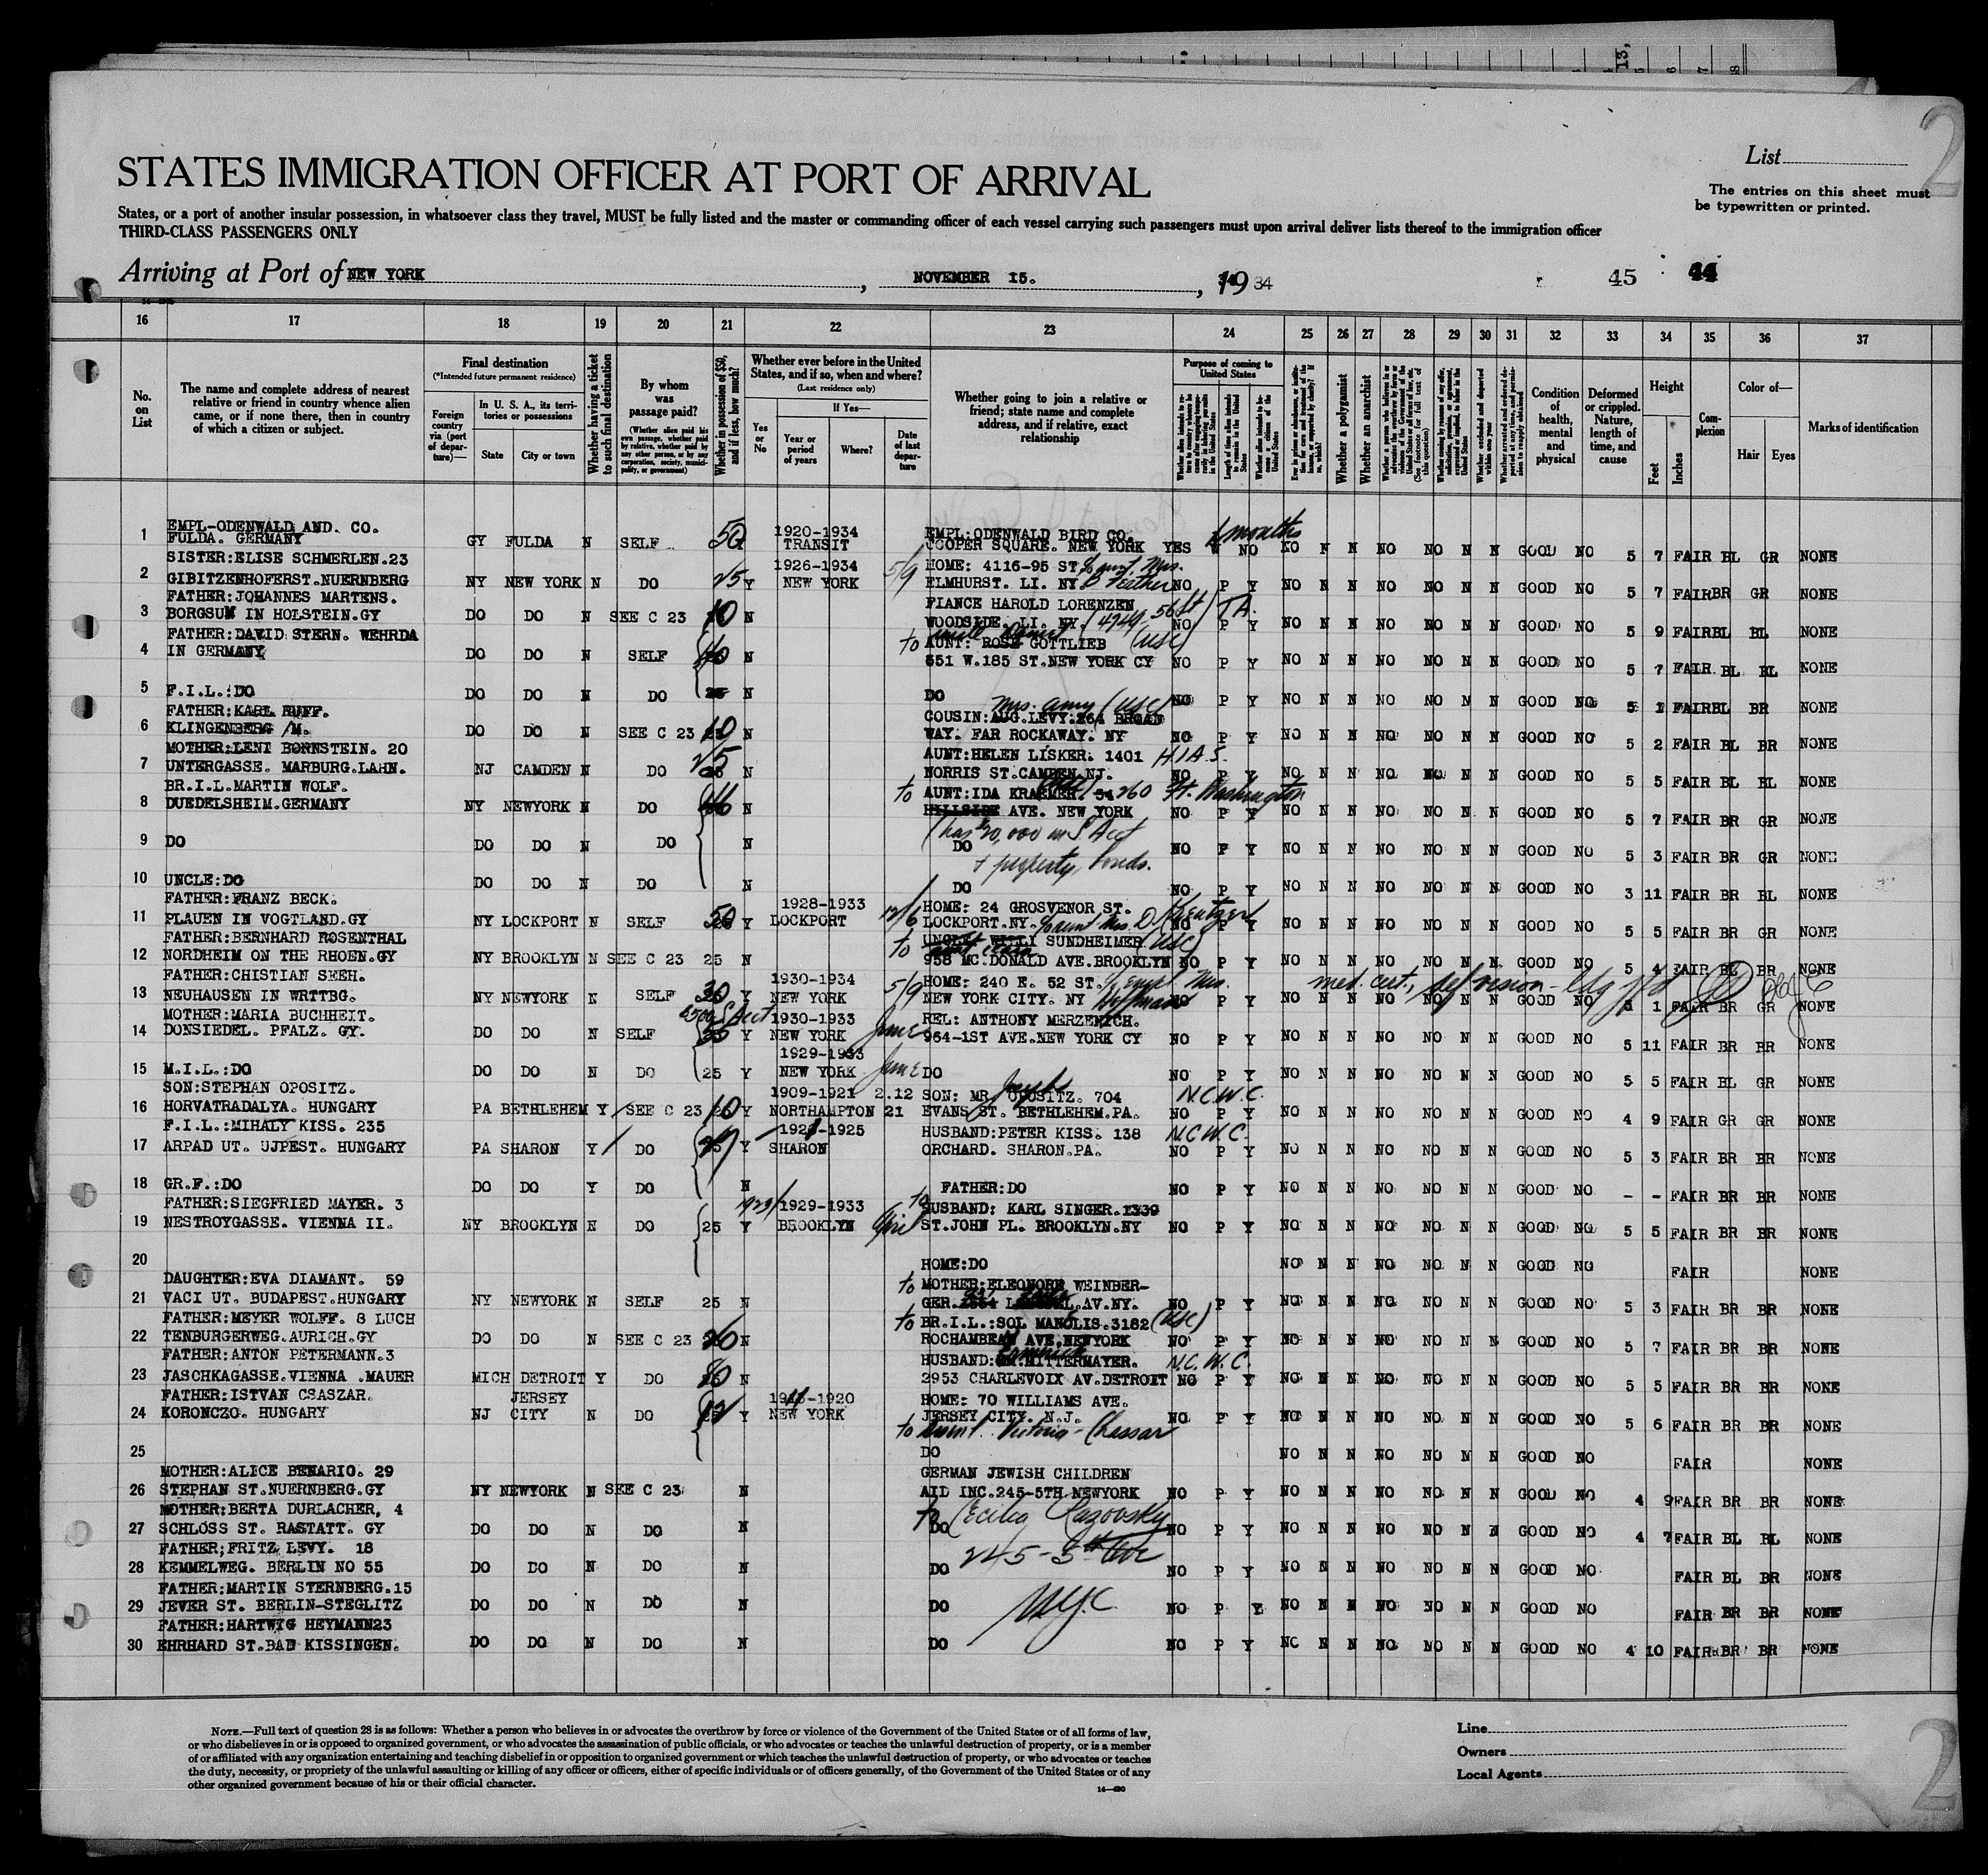 List
2
The entries on this sheet must
be typewritten or printed.
STATES IMMIGRATION OFFICER AT PORT OF ARRIVAL
States, or a port of another insular possession, in whatsoever class they travel, MUST be fully listed and the master or commanding officer of each vessel carrying such passengers must upon arrival deliver lists thereof to the immigration officer
THIRD-CLASS PASSENGERS ONLY
Arriving at Port of NEW YORK, NOVEMBER 15., 1934 45 44
16 17 18 19 20 21 22 23 24 25 26 27 28 29 30 31 32 33 34 35 36 37
No. on List
The name and complete address of nearest relative or friend in country whence alien came, or if none there, then in country of which a citizen or subject.
Final destination
(*Intended future permanent residence)
Foreign country via (port of departure)—
In U. S. A., its territories or possessions
State City or town
Whether having a ticket to such final destination
By whom was passage paid?
(Whether alien paid his own passage, whether paid by relative, whether paid by any other person, or by any corporation, society, municipality, or government)
Whether in possession of $50, and if less, how much?
Whether ever before in the United States, and if so, when and where?
(Last residence only)
Yes or No
If Yes—
Year or period of years Where? Date of last departure
Whether going to join a relative or friend; state name and complete address, and if relative, exact relationship
Purpose of coming to United States
Length of time alien intends to remain in the United States
Whether alien intends to become a citizen of the United States
Whether a polygamist
Whether an anarchist
Condition of health, mental and physical
Deformed or crippled. Nature, length of time, and cause
Height
Feet Inches
Complexion
Color of—
Hair Eyes
Marks of identification
EMPL-ODENWALD AND. CO. 1920-1934 EMPL:ODENWALD BIRD CO. months
1 FULDA. GERMANY GY FULDA N SELF 50 TRANSIT COOPER SQUARE. NEW YORK YES NO NO N N NO NO N N GOOD NO 5 7 FAIR BL GR NONE
SISTER:ELISE SCHMERLEN.23 1926-1934 5/9 HOME: 4116-95 ST. c/o aunt Mrs.
2 GIBITZENHOFERST.NUERNBERG NY NEW YORK N DO 25 Y NEW YORK ELMHURST. LI. NY. NO P Y NO N N NO NO N N GOOD NO 5 7 FAIR BR GR NONE
FATHER:JOHANNES MARTENS. FIANCE HAROLD LORENZEN
3 BORGSUM IN HOLSTEIN.GY DO DO N SEE C 23 10 N WOODSIDE. LI. NY. (4749-56 St) TA. NO P Y NO N N NO NO N N GOOD NO 5 9 FAIR BL BL NONE
FATHER:DAVID STERN. WEHRDA to AUNT: ROSE GOTTLIEB (USC)
4 IN GERMANY DO DO N SELF N 651 W.185 ST.NEW YORK CY NO P Y NO N N NO NO N N GOOD NO 5 7 FAIR BL BL NONE
5 F.I.L.:DO DO DO N DO 25 N DO NO P Y NO N N NO NO N N GOOD NO 5 1 FAIR BL BR NONE
FATHER:KARL RUFF. Mrs. Amy (USC) COUSIN:AUG.LEVY.264 BROAD
6 KLINGENBERG /M. DO DO N SEE C 23 10 N WAY. FAR ROCKAWAY. NY NO P Y NO N N NO NO N N GOOD NO 5 2 FAIR BL BR NONE
MOTHER:LENI BORNSTEIN. 20 AUNT:HELEN LISKER. 1401 H.I.A.S.
7 UNTERGASSE. MARBURG.LAHN. NJ CAMDEN N DO 25 N NORRIS ST.CAMDEN.NJ. NO P Y NO N N NO NO N N GOOD NO 5 5 FAIR BL BL NONE
BR.I.L.MARTIN WOLF. to AUNT:IDA KRAEMER. 54 260 Ft. Washington
8 DUEDELSHEIM.GERMANY NY NEWYORK N DO N HILLSIDE AVE. NEW YORK NO P Y NO N N NO NO N N GOOD NO 5 7 FAIR BR GR NONE
9 DO DO DO N DO N DO NO P Y NO N N NO NO N N GOOD NO 5 3 FAIR BR GR NONE
(has $20,000 in S Acct
+ property, bonds.
10 UNCLE:DO DO DO N DO N DO NO P Y NO N N NO NO N N GOOD NO 3 11 FAIR BR BL NONE
FATHER:FRANZ BECK. 1928-1933 HOME: 24 GROSVENOR ST.
11 PLAUEN IN VOGTLAND.GY NY LOCKPORT N SELF 50 Y LOCKPORT 12/6 LOCKPORT.NY. c/o aunt Mrs. D. NO P Y NO N N NO NO N N GOOD NO 5 5 FAIR BR GR NONE
FATHER:BERNHARD ROSENTHAL to UNCLE: WILLI SUNDHEIMER (USC)
12 NORDHEIM ON THE RHOEN.GY NY BROOKLYN N SEE C 23 25 N 958 MC.DONALD AVE.BROOKLYN NO P Y NO N N NO NO N N GOOD NO 5 4 FAIR BL BR NONE
FATHER:CHISTIAN SEEH. 1930-1934 5/9 HOME: 240 E. 52 ST. Mrs. med. cert.,
13 NEUHAUSEN IN WRTTBG. NY NEWYORK N SELF 30 Y NEW YORK NEW YORK CITY. NY Hoffmann NO P Y NO N N NO NO N N GOOD NO 5 1 FAIR BR GR NONE
MOTHER:MARIA BUCHHEIT. 1930-1933 REL: ANTHONY MERZENICH.
14 DONSIEDEL. PFALZ. GY. DO DO N SELF Y NEW YORK June 964-1ST AVE.NEW YORK CY NO P Y NO N N NO NO N N GOOD NO 5 11 FAIR BR BR NONE
1929-1933
15 M.I.L.:DO DO DO N DO 25 Y NEW YORK June DO NO P Y NO N N NO NO N N GOOD NO 5 5 FAIR BL GR NONE
SON:STEPHAN OPOSITZ. 1909-1921 2.12 SON: MR. OPOSITZ. 704 N.C.W.C.
16 HORVATRADALYA. HUNGARY PA BETHLEHEM Y SEE C 23 10 Y NORTHAMPTON 21 EVANS ST. BETHLEHEM.PA. NO P Y NO N N NO NO N N GOOD NO 4 9 FAIR GR GR NONE
F.I.L.:MIHALY KISS. 235 HUSBAND:PETER KISS. 138 N.C.W.C.
17 ARPAD UT. UJPEST. HUNGARY PA SHARON Y DO Y SHARON ORCHARD. SHARON.PA. NO P Y NO N N NO NO N N GOOD NO 5 3 FAIR BR BR NONE
18 GR.F.:DO DO DO Y DO N FATHER:DO NO P Y NO N N NO NO N N GOOD NO - - FAIR BR BR NONE
FATHER:SIEGFRIED MAYER. 3 1929-1933 to HUSBAND: KARL SINGER.1339
19 NESTROYGASSE. VIENNA II. NY BROOKLYN N DO 25 Y BROOKLYN ST.JOHN PL. BROOKLYN.NY NO P Y NO N N NO NO N N GOOD NO 5 5 FAIR BR BR NONE
20 HOME:DO NO N N NO NO N N GOOD NO FAIR NONE
DAUGHTER:EVA DIAMANT. 59 to MOTHER:ELEONORE WEINBER-
21 VACI UT. BUDAPEST.HUNGARY NY NEWYORK N SELF 25 N GER. AV.NY. NO P Y NO N N NO NO N N GOOD NO 5 3 FAIR BR BR NONE
FATHER:MEYER WOLFF. 8 LUCH to BR.I.L.:SOL MANOLIS.3182 (USC)
22 TENBURGERWEG.AURICH.GY DO DO N SEE C 23 N ROCHAMBEAU AVE.NEWYORK NO P Y NO N N NO NO N N GOOD NO 5 7 FAIR BR BR NONE
FATHER:ANTON PETERMANN.3 HUSBAND: HITTERMAYER. N.C.W.C.
23 JASCHKAGASSE.VIENNA .MAUER MICH DETROIT Y DO N 2953 CHARLEVOIX AV.DETROIT NO P Y NO N N NO NO N N GOOD NO 5 5 FAIR BR BR NONE
FATHER:ISTVAN CSASZAR. JERSEY HOME: 70 WILLIAMS AVE.
24 KORONCZO. HUNGARY NJ CITY N DO 12 Y NEW YORK JERSEY CITY. N.J. NO P Y NO N N NO NO N N GOOD NO 5 6 FAIR BR BR NONE
to Aunt. Victoria Chassar
25 DO NO N N NO NO N N GOOD NO FAIR NONE
MOTHER:ALICE BENARIO. 29 GERMAN JEWISH CHILDREN
26 STEPHAN ST.NUERNBERG.GY NY NEWYORK N SEE C 23 N AID INC.245-5TH NEWYORK NO P Y NO N N NO NO N N GOOD NO 4 9 FAIR BR BR NONE
MOTHER:BERTA DURLACHER, 4 to Cecilia Razovsky
27 SCHLOSS ST. RASTATT. GY DO DO N DO N DO NO P Y NO N N NO NO N N GOOD NO 4 7 FAIR BL BL NONE
FATHER;FRITZ LEVY. 18 245-5th Ave
28 KEMMELWEG. BERLIN NO 55 DO DO N DO N DO NO P Y NO N N NO NO N N GOOD NO FAIR BL BR NONE
FATHER:MARTIN STERNBERG.15 NYC.
29 JEVER ST. BERLIN-STEGLITZ DO DO N DO N DO NO P Y NO N N NO NO N N GOOD NO FAIR BR BR NONE
FATHER:HARTWIG HEYMANN23
30 EHRHARD ST.BAD KISSINGEN. DO DO N DO N DO NO P Y NO N N NO NO N N GOOD NO 4 10 FAIR BR BR NONE
NOTE.—Full text of question 28 is as follows: Whether a person who believes in or advocates the overthrow by force or violence of the Government of the United States or of all forms of law,
or who disbelieves in or is opposed to organized government, or who advocates the assassination of public officials, or who advocates or teaches the unlawful destruction of property, or is a member
of or affiliated with any organization entertaining and teaching disbelief in or opposition to organized government or which teaches the unlawful destruction of property, or who advocates or teaches
the duty, necessity, or propriety of the unlawful assaulting or killing of any officer or officers, either of specific individuals or of officers generally, of the Government of the United States or of any
other organized government because of his or their official character.
Line
Owners
Local Agents
2